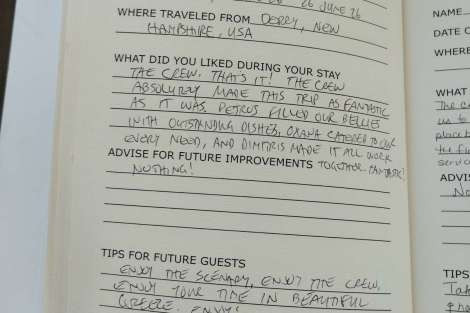 26 JUNE 26
WHERE TRAVELED FROM DERRY, NEW
HAMPSHIRE, USA
WHAT DID YOU LIKED DURING YOUR STAY
THE CREW. THAT'S IT! THE CREW
ABSOLUTLY MADE THIS TRIP AS FANTASTIC
AS IT WAS. PETROS FILLED OUR BELLIES
WITH OUTSTANDING DISHES, OXANA CATERED TO OUR
EVERY NEED, AND DIMITRIS MADE IT ALL WORK
ADVISE FOR FUTURE IMPROVEMENTS TOGETHER. FANTASTIC!
NOTHING!
TIPS FOR FUTURE GUESTS
ENJOY THE SCENARY, ENJOY THE CREW,
ENJOY YOUR TIME IN BEAUTIFUL
GREECE. ENJOY!
NAME
DATE O
WHERE
WHAT
The c
us to
placed
the fu
servic
ADVIS
No
TIPS
Tak